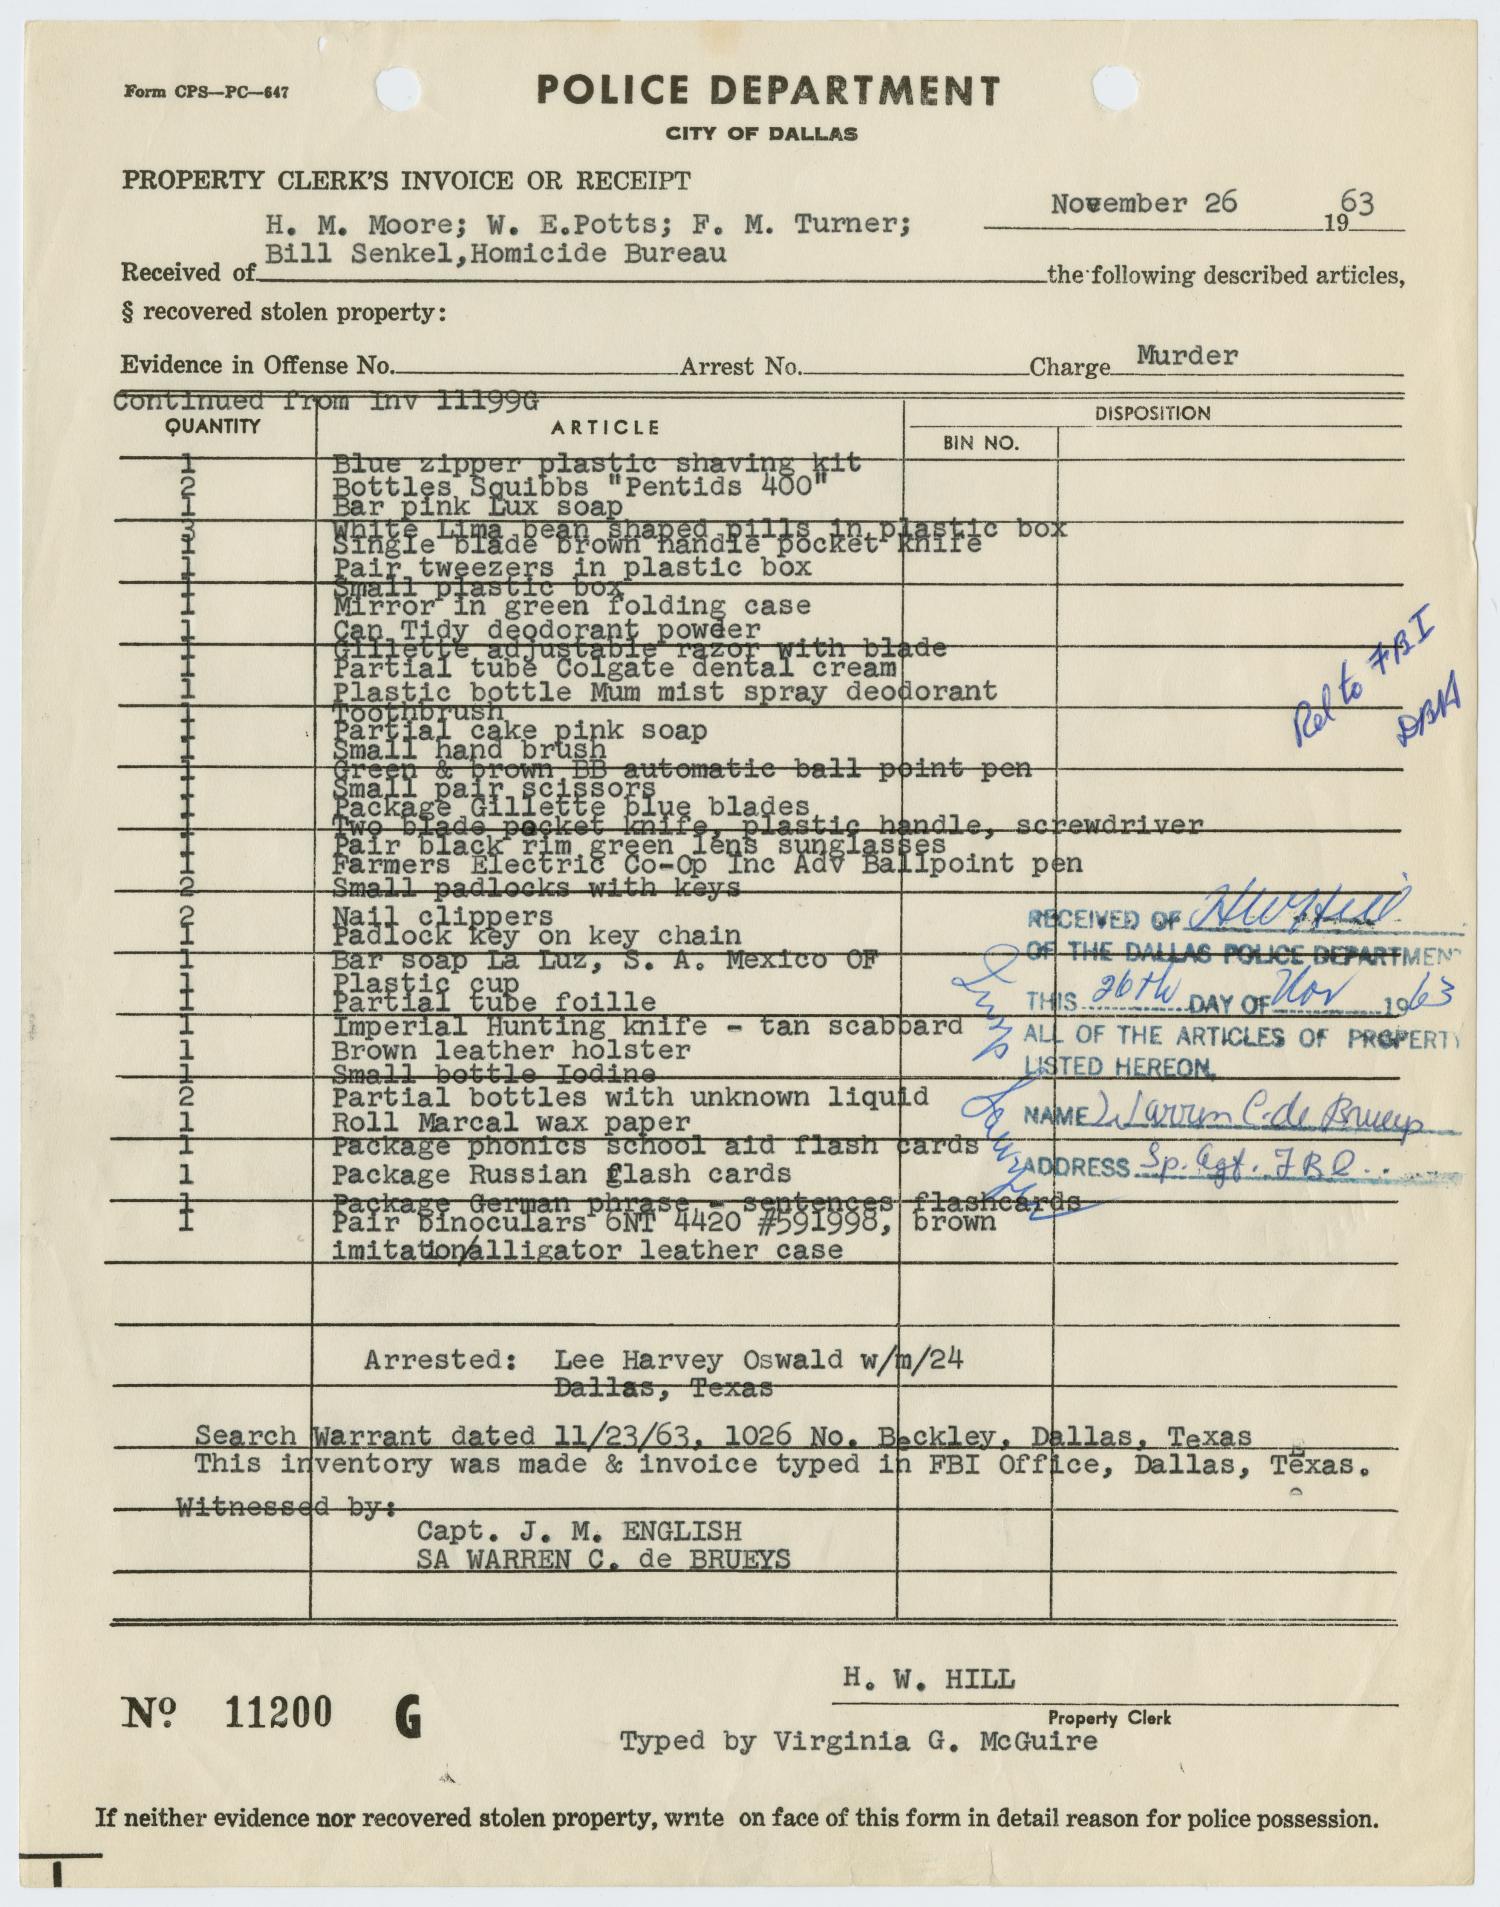 Form CPS—PC—647
POLICE DEPARTMENT
CITY OF DALLAS
PROPERTY CLERK'S INVOICE OR RECEIPT
November 26 1963
H. M. Moore; W. E.Potts; F. M. Turner;
Bill Senkel,Homicide Bureau
Received of the following described articles,
§ recovered stolen property:
Evidence in Offense No. Arrest No. Charge Murder
Continued from Inv 11199G
QUANTITY ARTICLE DISPOSITION
BIN NO.
1 Blue zipper plastic shaving kit
2 Bottles Squibbs "Pentids 400"
1 Bar pink Lux soap
3 White Lima bean shaped pills in plastic box
1 Single blade brown handle pocket knife
1 Pair tweezers in plastic box
1 Small plastic box
1 Mirror in green folding case
1 Can Tidy deodorant powder
1 Gillette adjustable razor with blade
1 Partial tube Colgate dental cream
1 Plastic bottle Mum mist spray deodorant
1 Toothbrush
1 Partial cake pink soap
1 Small hand brush
1 Green & brown BB automatic ball point pen
1 Small pair scissors
1 Package Gillette blue blades
1 Two blade pocket knife, plastic handle, screwdriver
1 Pair black rim green lens sunglasses
1 Farmers Electric Co-Op Inc Adv Ballpoint pen
2 Small padlocks with keys
2 Nail clippers
1 Padlock key on key chain
1 Bar soap La Luz, S. A. Mexico OF
1 Plastic cup
1 Partial tube foille
1 Imperial Hunting knife - tan scabbard
1 Brown leather holster
1 Small bottle Iodine
2 Partial bottles with unknown liquid
1 Roll Marcal wax paper
1 Package phonics school aid flash cards
1 Package Russian flash cards
1 Package German phrase - sentences flashcards
1 Pair binoculars 6NT 4420 #591998, brown
imitation/alligator leather case
Rel to FBI
DBH
RECEIVED OF HW Hill
OF THE DALLAS POLICE DEPARTMENT
THIS 26th DAY OF Nov 1963
ALL OF THE ARTICLES OF PROPERTY
LISTED HEREON.
NAME Warren C. de Brueys
ADDRESS Sp. Agt. FBI
Arrested: Lee Harvey Oswald w/m/24
Dallas, Texas
Search Warrant dated 11/23/63, 1026 No. Beckley, Dallas, Texas
This inventory was made & invoice typed in FBI Office, Dallas, Texas.
Witnessed by:
Capt. J. M. ENGLISH
SA WARREN C. de BRUEYS
H. W. HILL
Nº 11200 G
Property Clerk
Typed by Virginia G. McGuire
If neither evidence nor recovered stolen property, write on face of this form in detail reason for police possession.